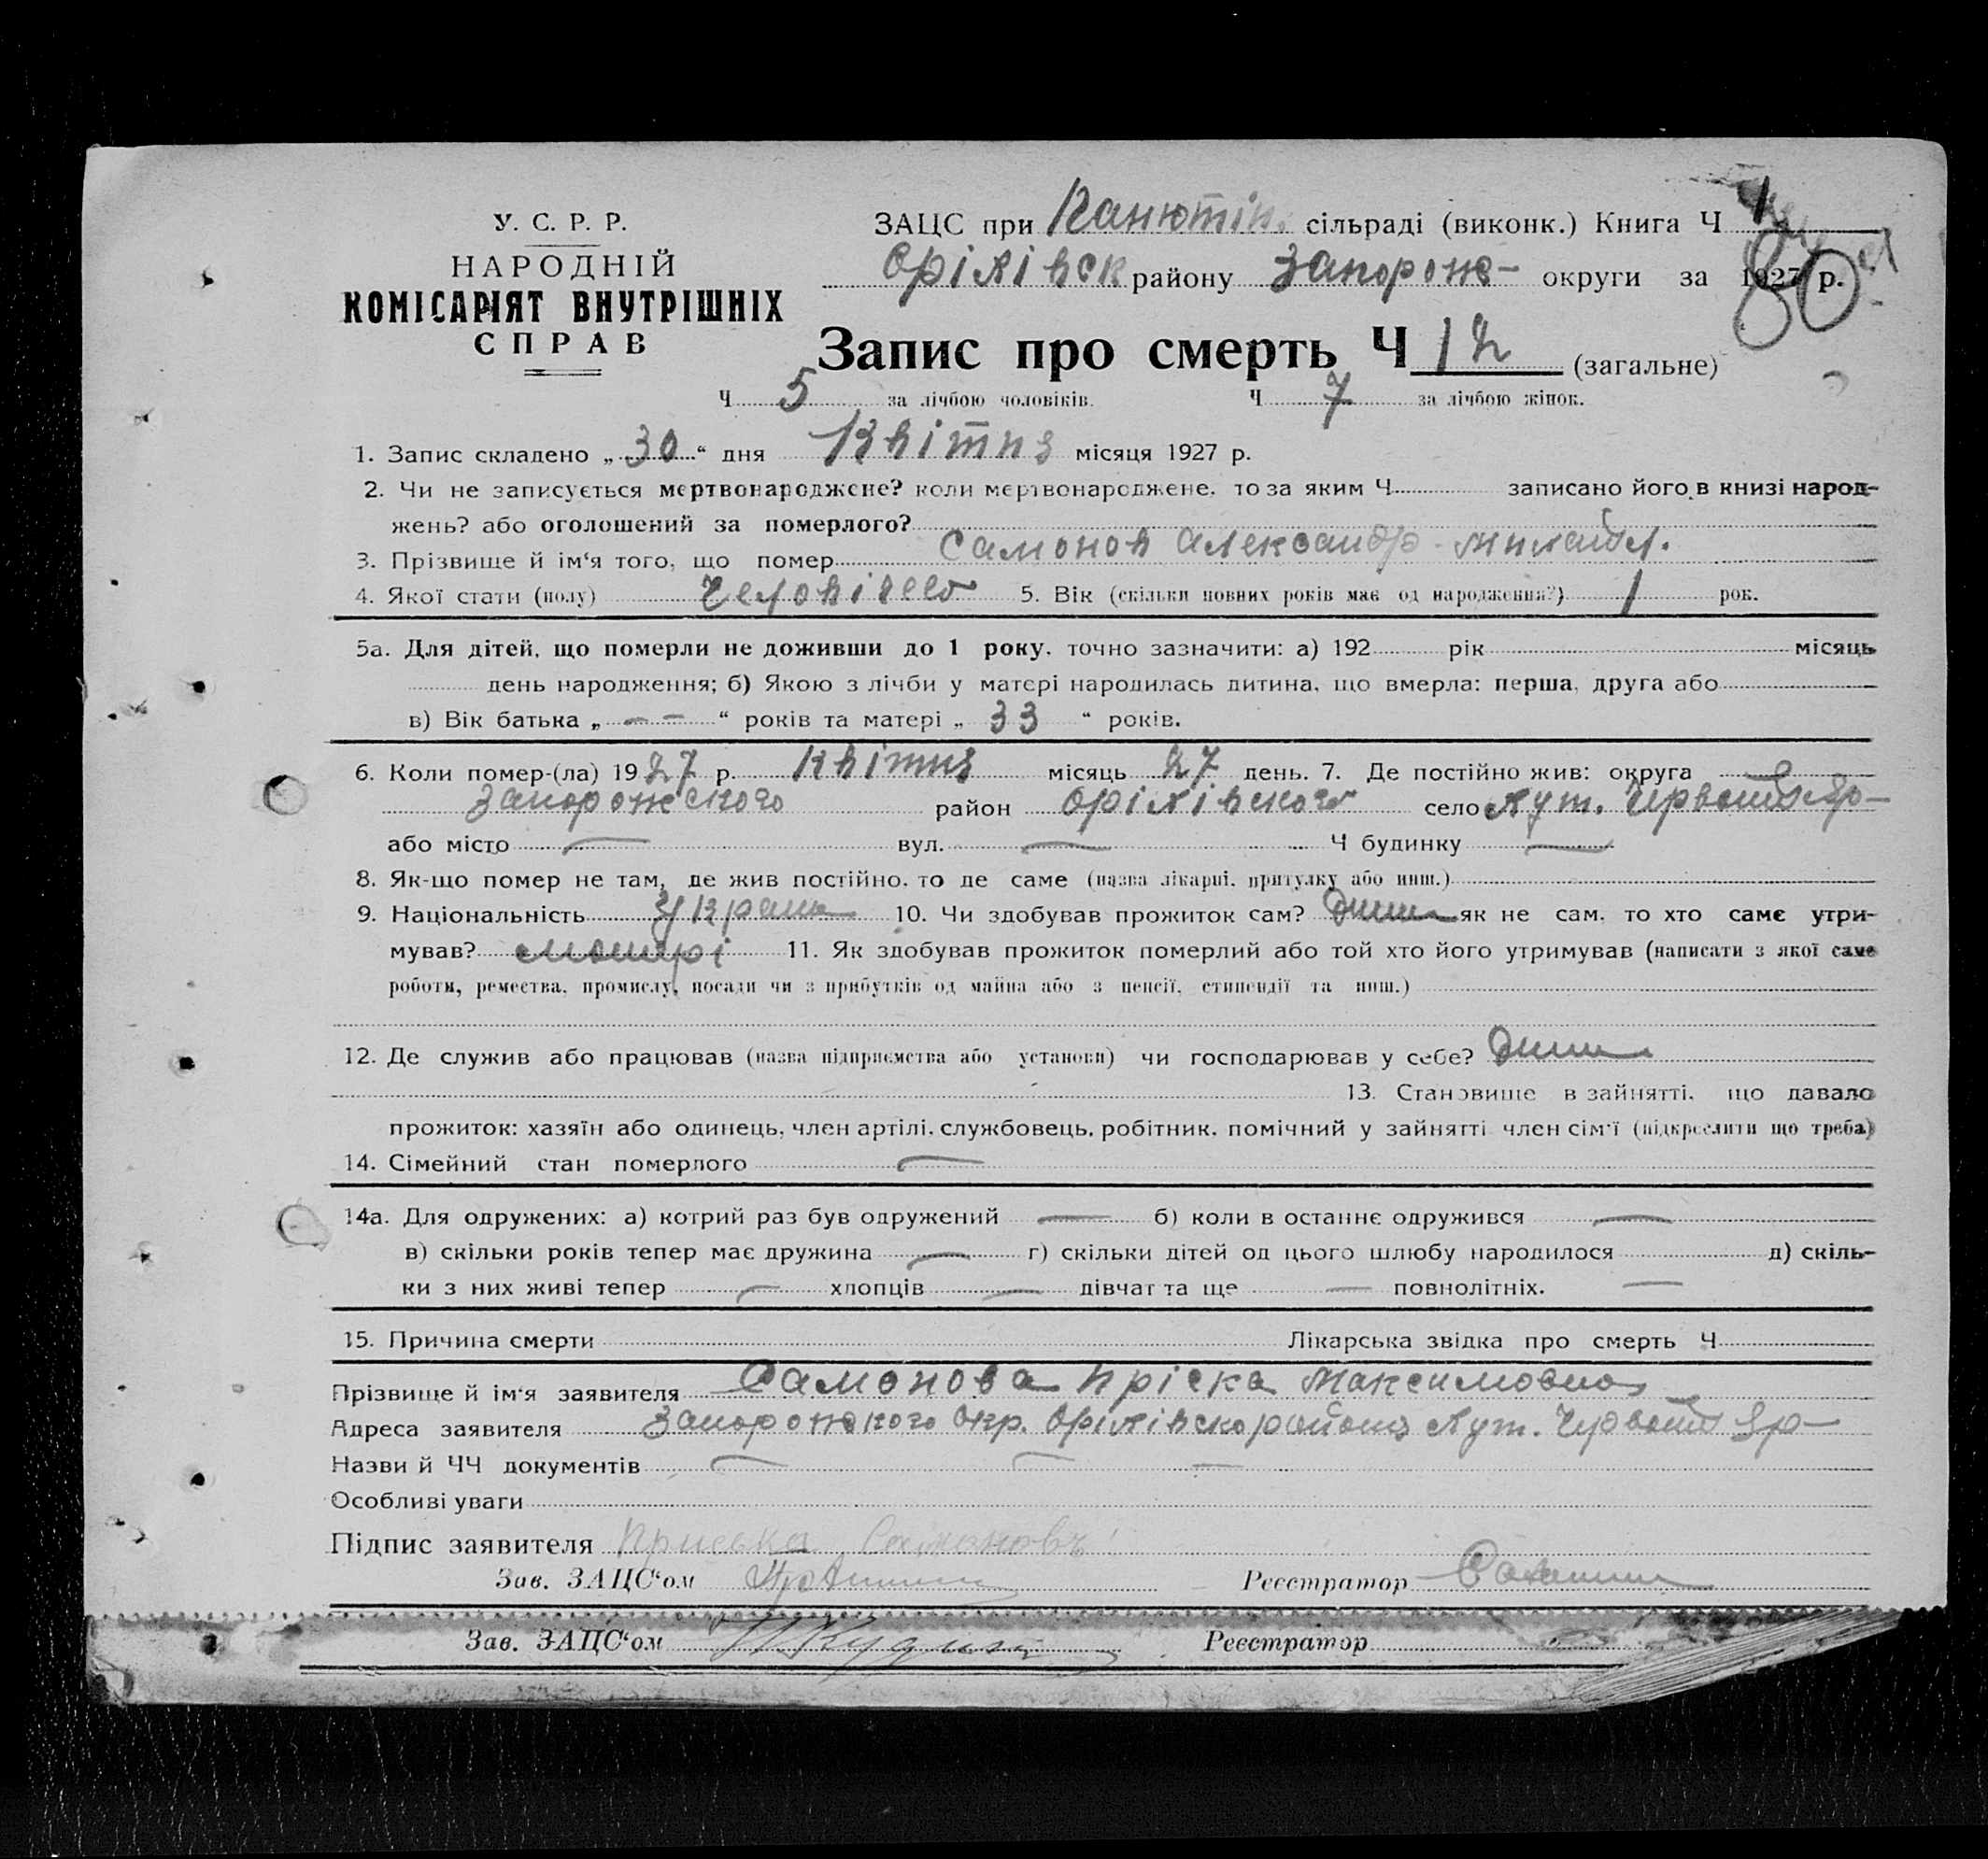 У. С. Р. Р.
НАРОДНІЙ
КОМІСАРІЯТ ВНУТРІШНІХ
СПРАВ
ЗАЦС при Канютін. сільраді (виконк.) Книга Ч 1
Оріхівск району Запорож- округи за 1927 р.
80
Запис про смерть Ч 12 (загальне)
Ч 5 за лічбою чоловіків. Ч 7 за лічбою жінок.
1. Запис складено „30“ дня Квітня місяця 1927 р.
2. Чи не записується мертвонароджене? коли мертвонароджене, то за яким Ч записано його в книзі народ-
жень? або оголошений за померлого?
3. Прізвище й ім‘я того, що помер Самонов Александр Михайл.
4. Якої стати (полу) 5. Вік (скільки повних років має од народження?) 1 рок.
5а. Для дітей, що померли не доживши до 1 року, точно зазначити: а) 192 рік місяць
день народження; б) Якою з лічби у матері народилась дитина, що вмерла: перша, друга або
в) Вік батька „ — — “ років та матері „ 33 “ років.
6. Коли помер-(ла) 1927 р. Квітня місяць 27 день. 7. Де постійно жив: округа
Запорожского район Оріхівского село Хут. Червоний Яр-
або місто — вул. — Ч будинку —
8. Як-що помер не там, де жив постійно, то де саме (назва лікарні, притулку або инш.)
9. Національність 10. Чи здобував прожиток сам? як не сам, то хто саме утри-
мував? матері 11. Як здобував прожиток померлий або той хто його утримував (написати з якої саме
роботи, ремества, промислу, посади чи з прибутків од майна або з пенсії, стипендії та инш.)
12. Де служив або працював (назва підприємства або установи) чи господарював у себе?
13. Становище в зайнятті, що давало
прожиток: хазяїн або одинець, член артілі, службовець, робітник, помічний у зайнятті член сім‘ї (підкреслити що треба)
14. Сімейний стан померлого —
14а. Для одружених: а) котрий раз був одружений — б) коли в останнє одружився —
в) скільки років тепер має дружина — г) скільки дітей од цього шлюбу народилося д) скіль-
ки з них живі тепер — хлопців — дівчат та ще — повнолітніх. —
15. Причина смерти Лікарська звідка про смерть Ч
Прізвище й ім‘я заявителя Самонова Пріска Максимовна
Адреса заявителя Запорожского Окр. Оріхівско района Хут. Червоний Яр-
Назви й ЧЧ документів — — —
Особливі уваги
Підпис заявителя Приська Самоновъ
Зав. ЗАЦС‘ом Реєстратор
Зав. ЗАЦС‘ом Реєстратор